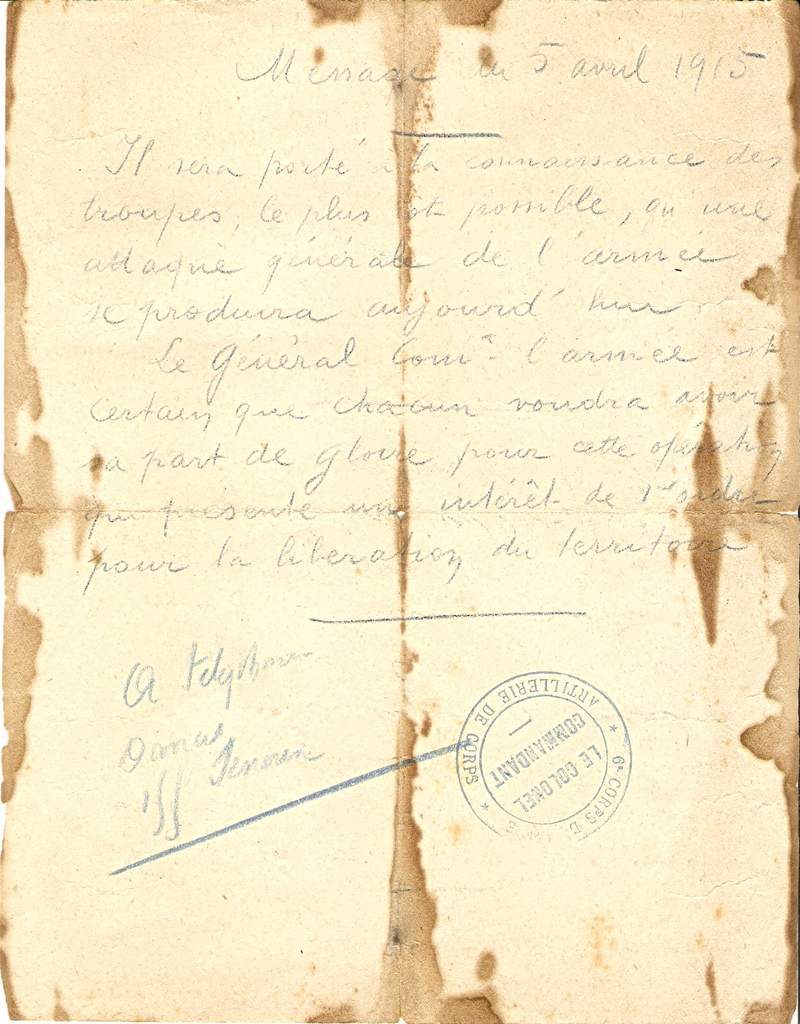 Message du 5 avril 1915
Il sera porté à la connaissance des
troupes, le plus tôt possible, qu'une
attaque générale de l'armée
se produira aujourd'hui
Le Général Comt l'armée est
certain que chacun voudra avoir
sa part de gloire pour cette opération
qui présente un intérêt de 1er ordre
pour la libération du territoire
A
ARTILLERIE DE CORPS
* 6e CORPS D
LE COLONEL
COMMANDANT